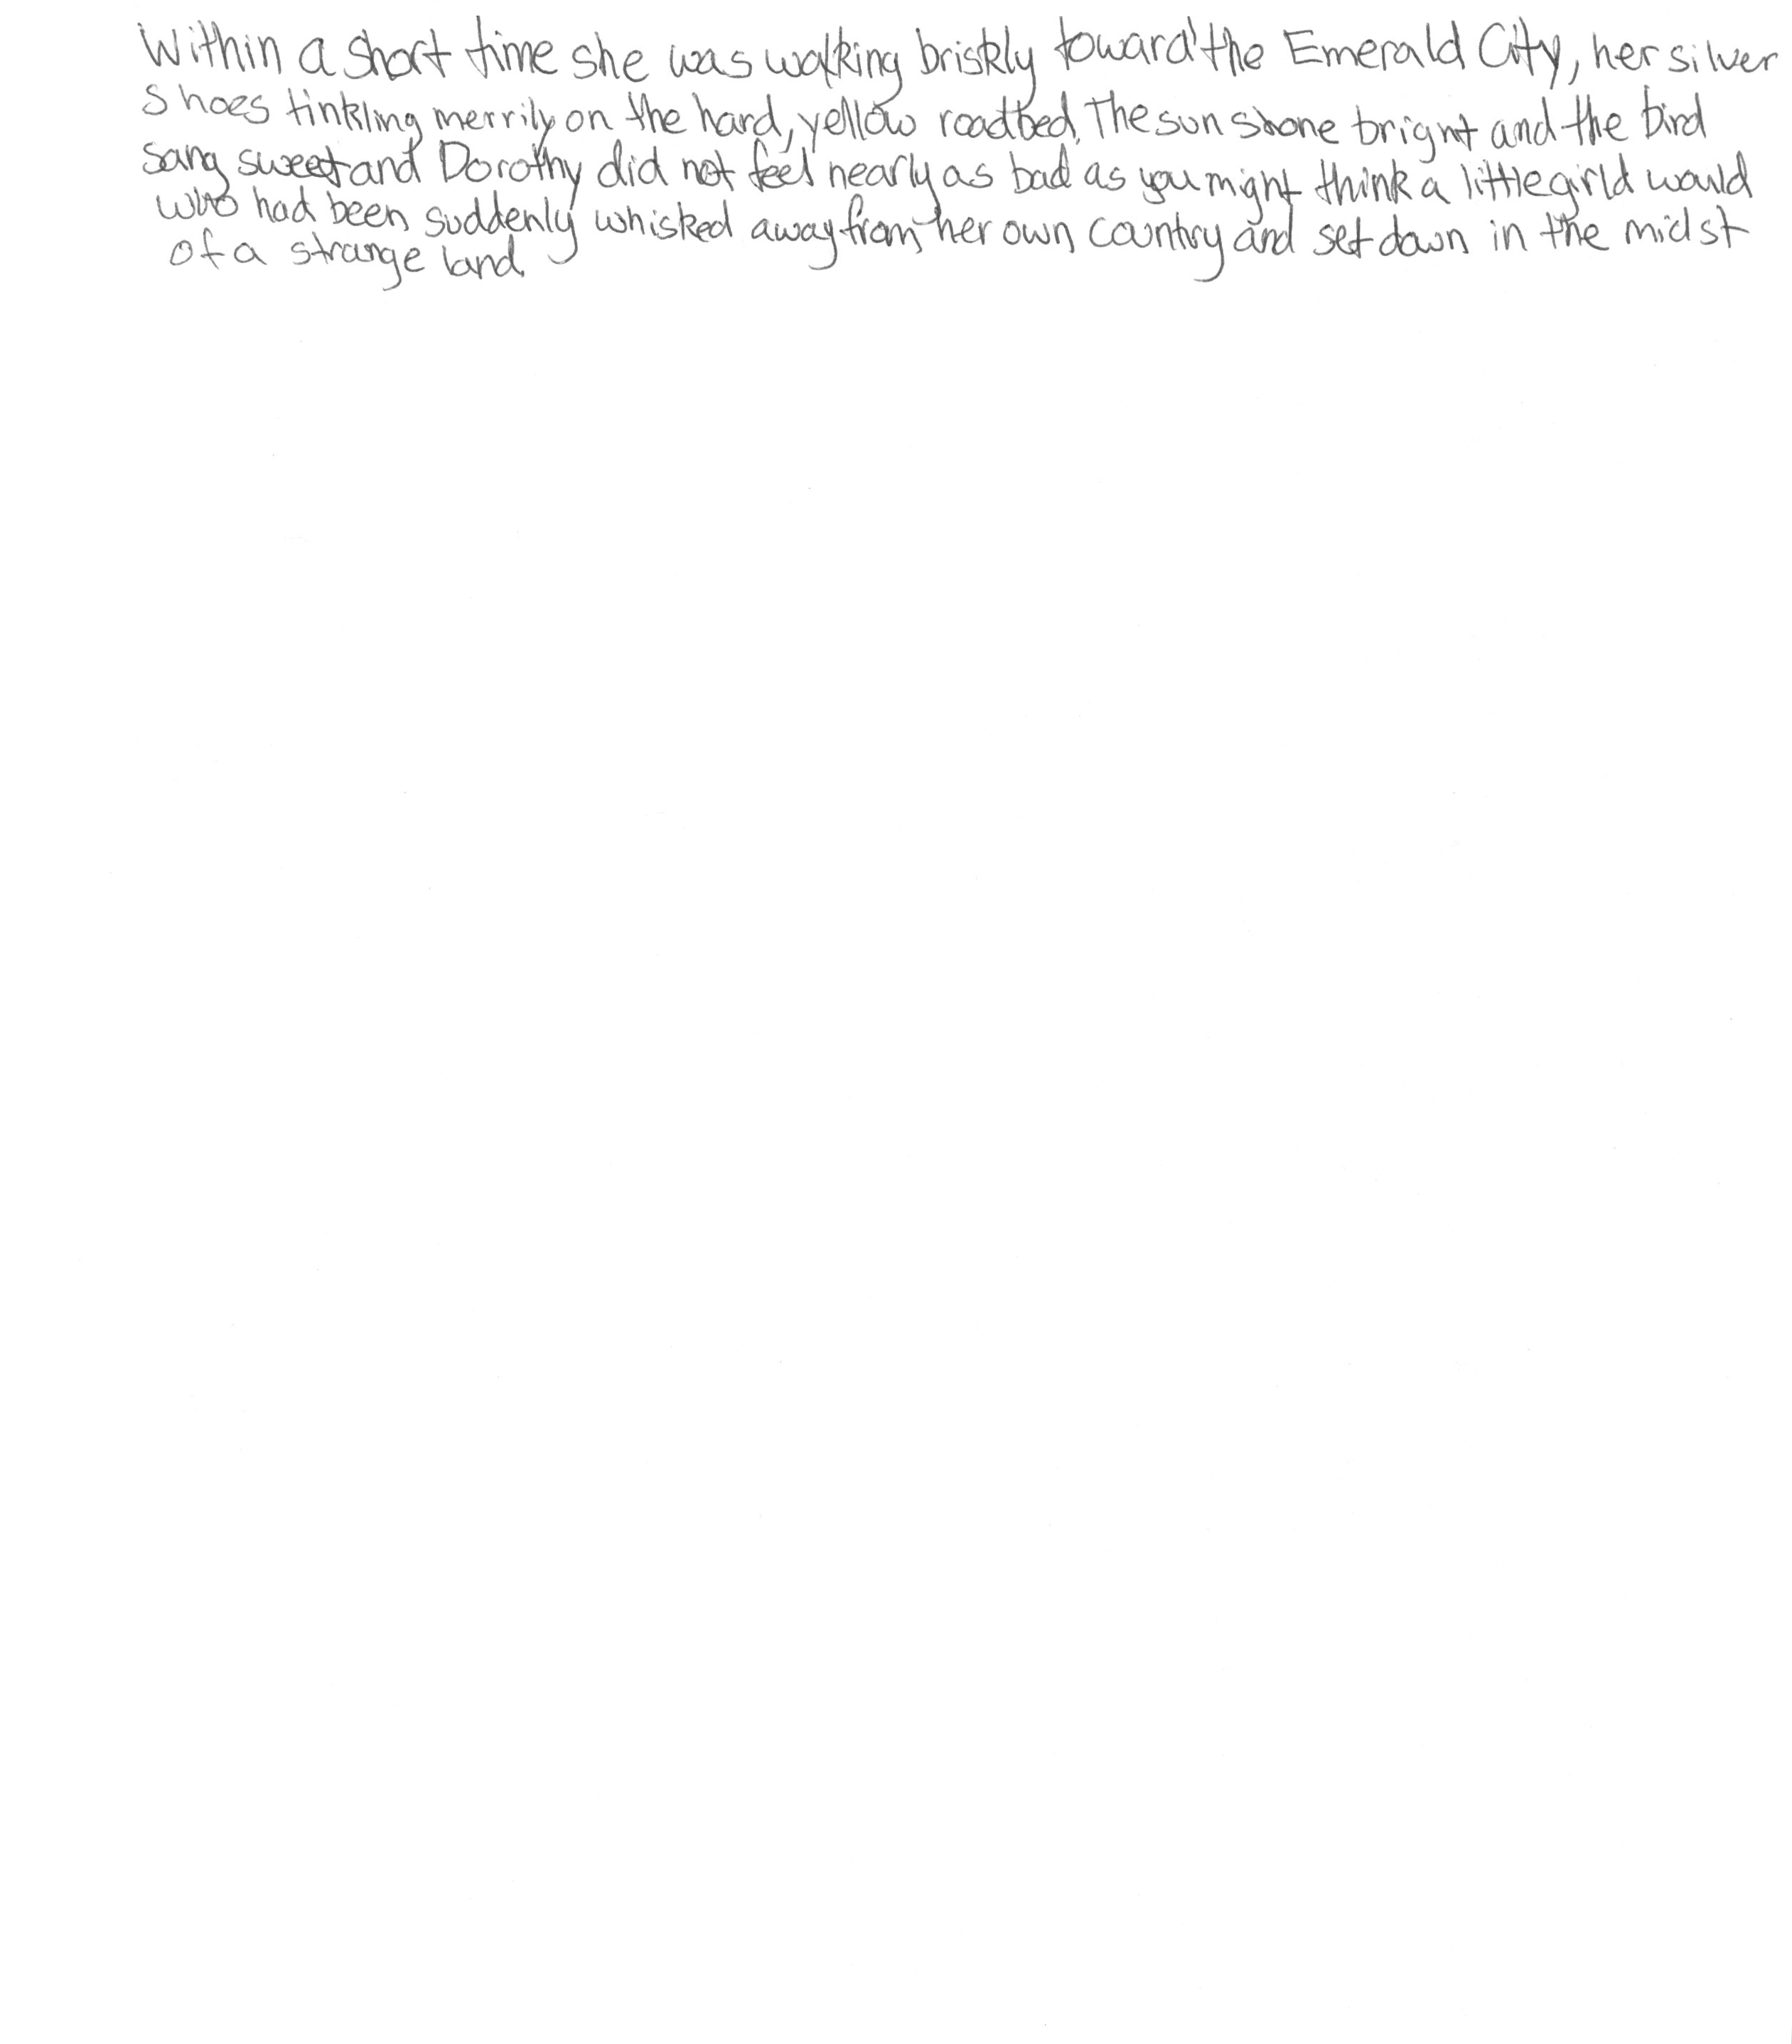 Within a short time she was walking briskly toward the Emerald City, her silver
shoes tinkling merrily on the hard, yellow roadbed. The sun shone bright and the bird
sang sweet and Dorothy did not feel nearly as bad as you might think a little girld would
who had been suddenly whisked away from her own country and set down in the midst
of a strange land.